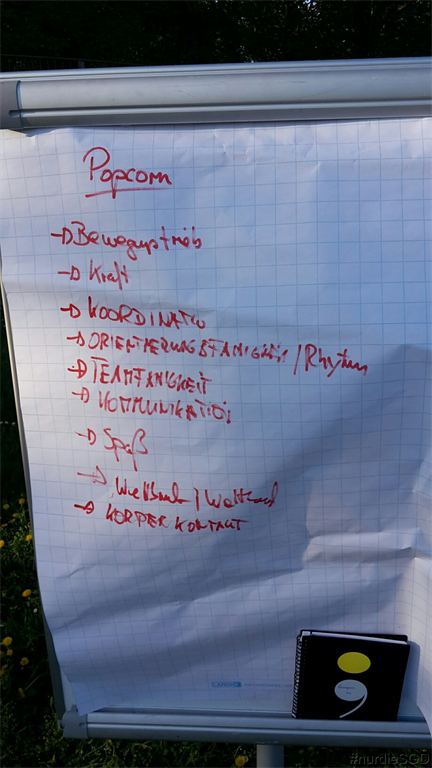 Popcorn
→ Bewegungstrieb
→ Kraft
→ KOORDINATIO
→ ORIENTIERUNGSFÄHIGKEIT / Rhythm
→ TEAMFÄHIGKEIT
→ KOMMUNIKATION
→ Spaß
→ /
→ KÖRPERKONTAKT
#nurdieSGD